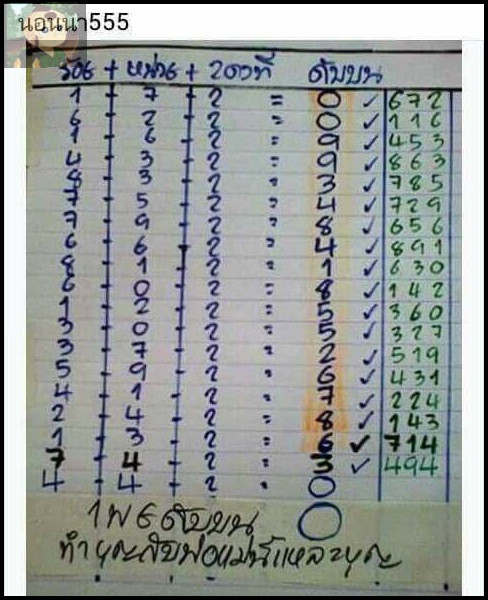 นอนนา555
ร้อย + หน่วย + 2คงที่ ดับบน
1 - 7 - 2 = 0 ✓ 672
6 - 2 - 2 = 0 ✓ 116
1 - 6 - 2 = 9 ✓ 453
4 - 3 - 2 = 9 ✓ 863
8 - 3 - 2 = 3 ✓ 785
7 - 5 - 2 = 4 ✓ 729
7 - 9 - 2 = 8 ✓ 656
6 - 6 - 2 = 4 ✓ 891
8 - 1 - 2 = 1 ✓ 630
6 - 0 - 2 = 8 ✓ 142
1 - 2 - 2 = 5 ✓ 360
3 - 0 - 2 = 5 ✓ 327
3 - 7 - 2 = 2 ✓ 519
5 - 9 - 2 = 6 ✓ 431
4 - 1 - 2 = 7 ✓ 224
2 - 4 - 2 = 8 ✓ 143
1 - 3 - 2 = 6 ✓ 714
7 - 4 - 2 = 3 ✓ 494
4 - 4 - 2 = 0
1 พ 6 ดับบน 0
ทำบุญกับพ่อแม่นี่แหละบุญ